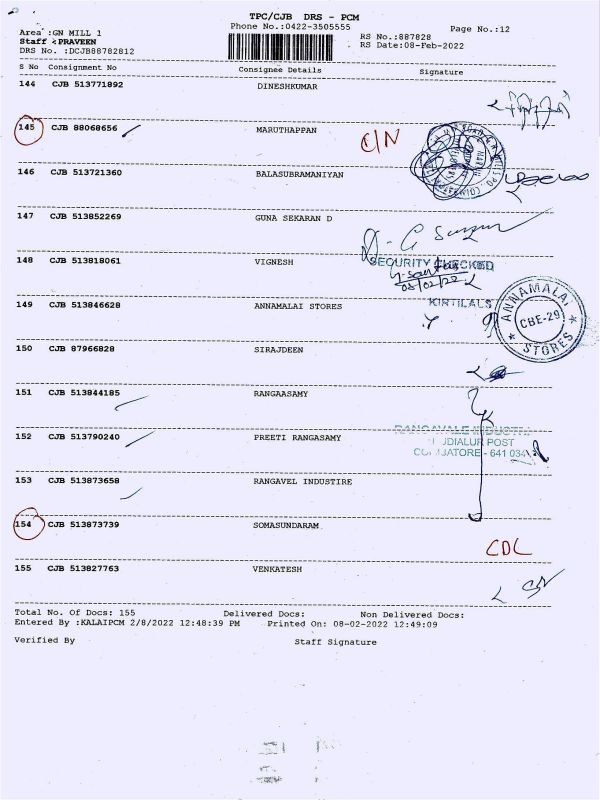 TPC/CJB DRS - PCM
Phone No.:0422-3505555
Page No.:12
Area :GN MILL 1
RS No.:887828
Staff :PRAVEEN
RS Date:08-Feb-2022
DRS No. :DCJB88782812
S No Consignment No Consignee Details Signature
144 CJB 513771892 DINESHKUMAR
145 CJB 88068656 MARUTHAPPAN C/N
146 CJB 513721360 BALASUBRAMANIYAN
147 CJB 513852269 GUNA SEKARAN D
148 CJB 513818061 VIGNESH
SECURITY CHECKED
08/02/22
KIRTILALS
149 CJB 513846628 ANNAMALAI STORES
ANNAMALAI
CBE-29
STORES
150 CJB 87966828 SIRAJDEEN
151 CJB 513844185 RANGAASAMY
152 CJB 513790240 PREETI RANGASAMY
POST
- 641 034
153 CJB 513873658 RANGAVEL INDUSTIRE
154 CJB 513873739 SOMASUNDARAM
CDL
155 CJB 513827763 VENKATESH
Total No. Of Docs: 155 Delivered Docs: Non Delivered Docs:
Entered By :KALAIPCM 2/8/2022 12:48:39 PM Printed On: 08-02-2022 12:49:09
Verified By Staff Signature